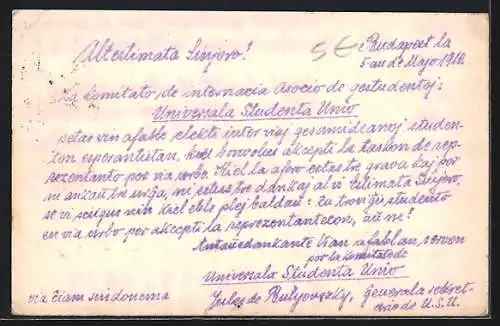 Altestimata Sinjoro!
5€
Budapest la
5-an de Majo 19
La komitato de internacia Asocio de gestudentoj:
Universala Studenta Unio
petas vin afable elekti inter viaj gesamideanoj studen-
ton esperantistan, kiel bonvolus akcepti la taskon de rep-
rezentanto por via urbo. Ĉiel la afero estas tre grava kaj por
ni ankaŭ tre urĝa, ni estus tre dankaj al vi estimata Sinjoro,
se vi sciigus nin kiel eble plej baldaŭ: ĉu troviĝis studento
en via urbo por akcepti la reprezentantecon, aŭ ne!
Antaŭedankante vian afablan servon
por la komitato de
Universala Studenta Unio
via ĉiam sindonema
Jules de , Generala sekret-
ario de U.S.U.